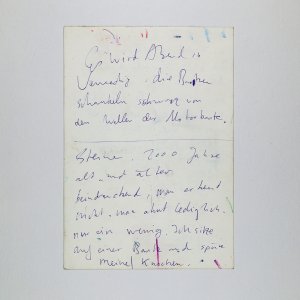 Es wird Abend in
Venedig, die Boote
schaukeln schwarz von
den Wellen der Motorboote.
Steine, 2000 Jahre
alt, und älter
beindruckend, man erkennt
nicht, man ahnt lediglich.
nur ein wenig. Ich sitze
auf einer Bank und spüre
meine Knochen.